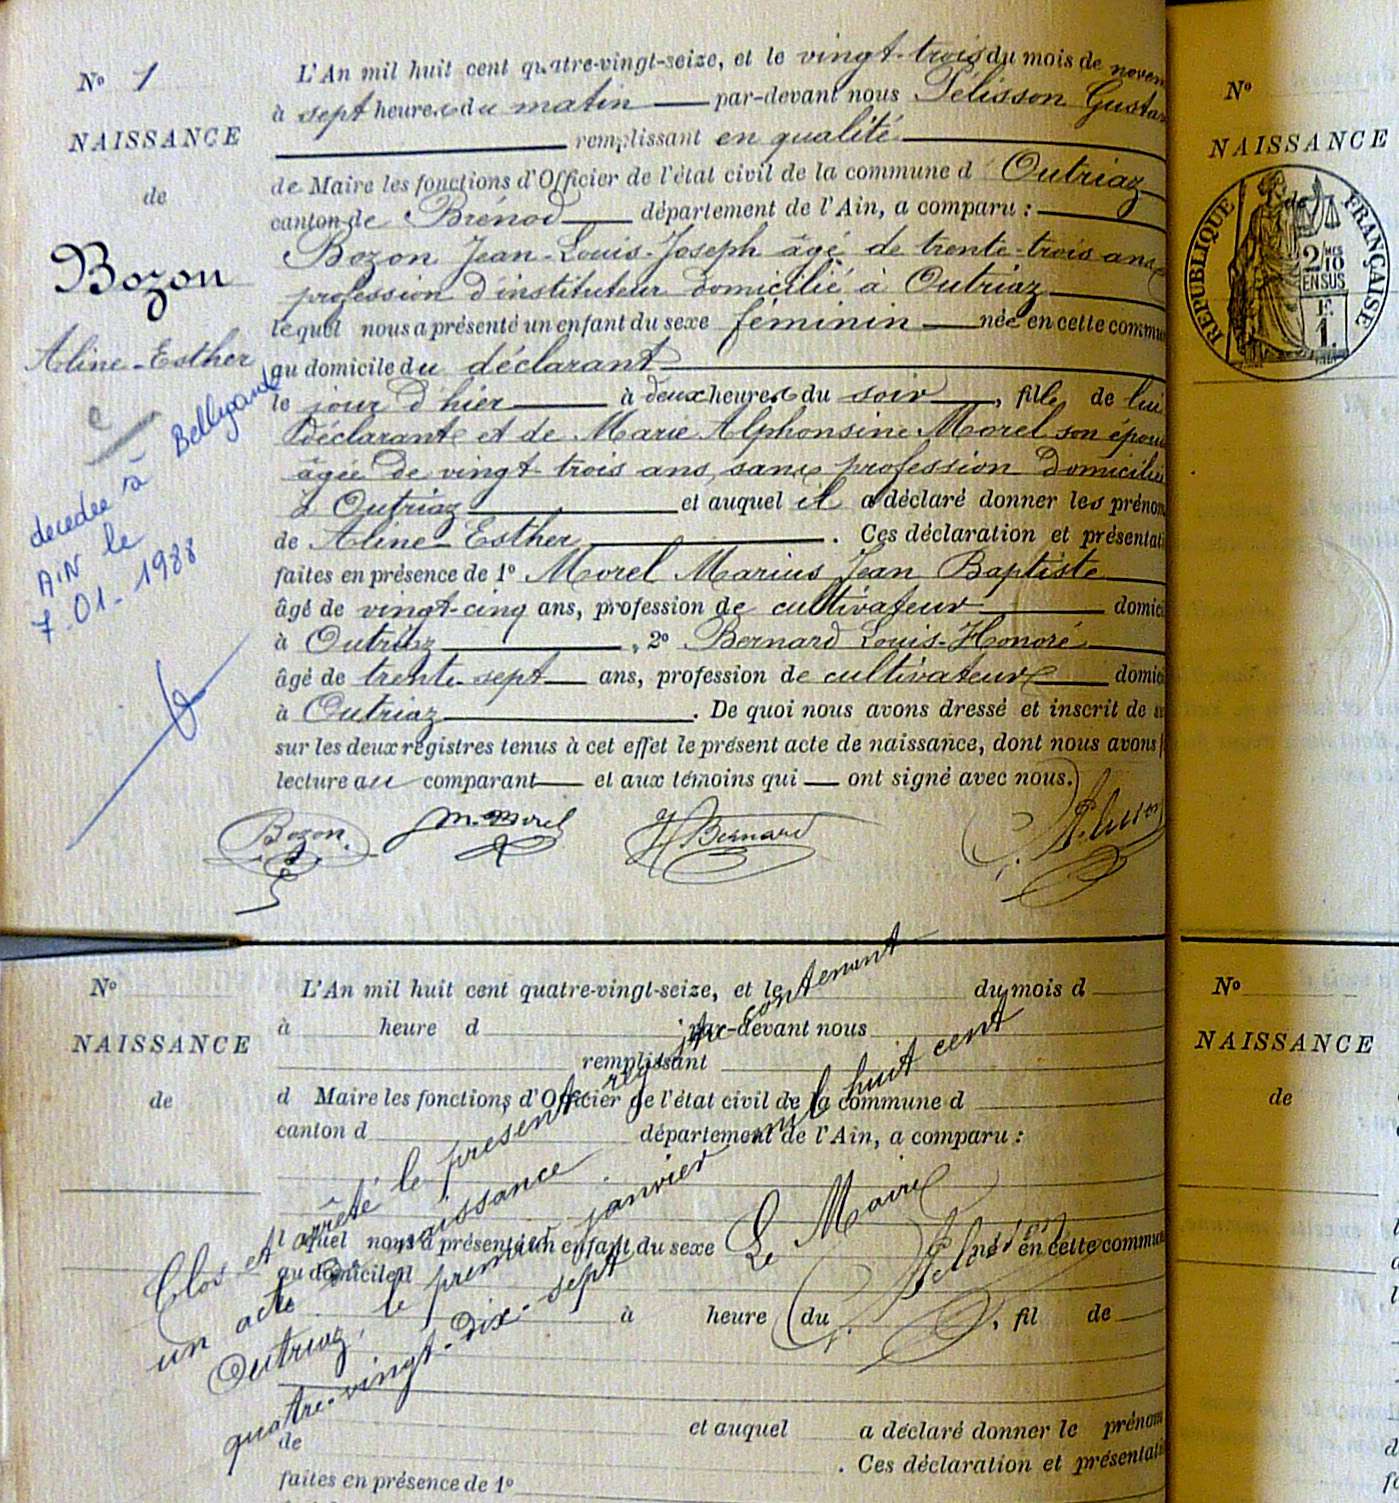 N° 1
NAISSANCE
de
Bozon
Aline-Esther
décédée à Bellegarde
AIN le
7-01-1988
L'An mil huit cent quatre-vingt-seize, et le vingt-trois du mois de novem
à sept heures du matin par-devant nous Pélisson Gustav
remplissant en qualité
de Maire les fonctions d'Officier de l'état civil de la commune d Outriaz
canton de Brénod département de l'Ain, a comparu :
Bozon Jean-Louis-Joseph âgé de trente-trois ans
profession d'instituteur domicilié à Outriaz
lequel nous a présenté un enfant du sexe féminin née en cette commu
au domicile du déclarant
le jour d'hier à deux heures du soir, fille de lui
déclarant et de Marie Alphonsine Morel son épou
âgée de vingt-trois ans, sans profession domicilié
à Outriaz et auquel il a déclaré donner les prénom
de Aline-Esther. Ces déclaration et présentati
faites en présence de 1° Morel Marius Jean Baptiste
âgé de vingt-cinq ans, profession de cultivateur domici
à Outriaz, 2° Bernard Louis-Honoré
âgé de trente-sept ans, profession de cultivateur domici
à Outriaz. De quoi nous avons dressé et inscrit de
sur les deux registres tenus à cet effet le présent acte de naissance, dont nous avons
lecture au comparant et aux témoins qui ont signé avec nous.
Bozon. M. Morel H Bernard Pélisson
N°
NAISSANCE
de
L'An mil huit cent quatre-vingt-seize, et le du mois d
à heure d par-devant nous
remplissant
d Maire les fonctions d'Officier de l'état civil de la commune d
canton d département de l'Ain, a comparu :
l quel nous a présenté un enfant du sexe né en cette commu
au domicile d
à heure du, fil de
et auquel a déclaré donner le prénom
de. Ces déclaration et présentati
faites en présence de 1°
Clos et arrêté le présent registre contenant
un acte de naissance
Outriaz, le premier janvier mil huit cent
quatre-vingt-dix-sept
Le Maire
Pélisson
N°
NAISSANCE
de
RÉPUBLIQUE FRANÇAISE
2 MES
10
EN SUS
F.
1.
N°
NAISSANCE
de